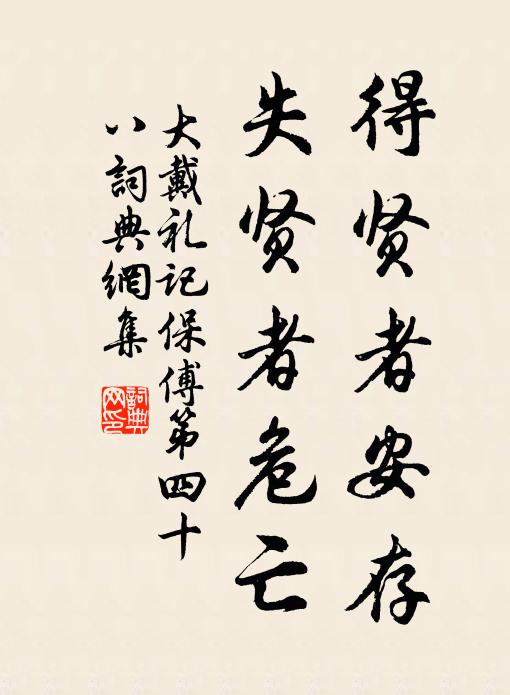 得贤者安存
失贤者危亡
大戴礼记保傅第四十
八詞典網集
詞典
网印